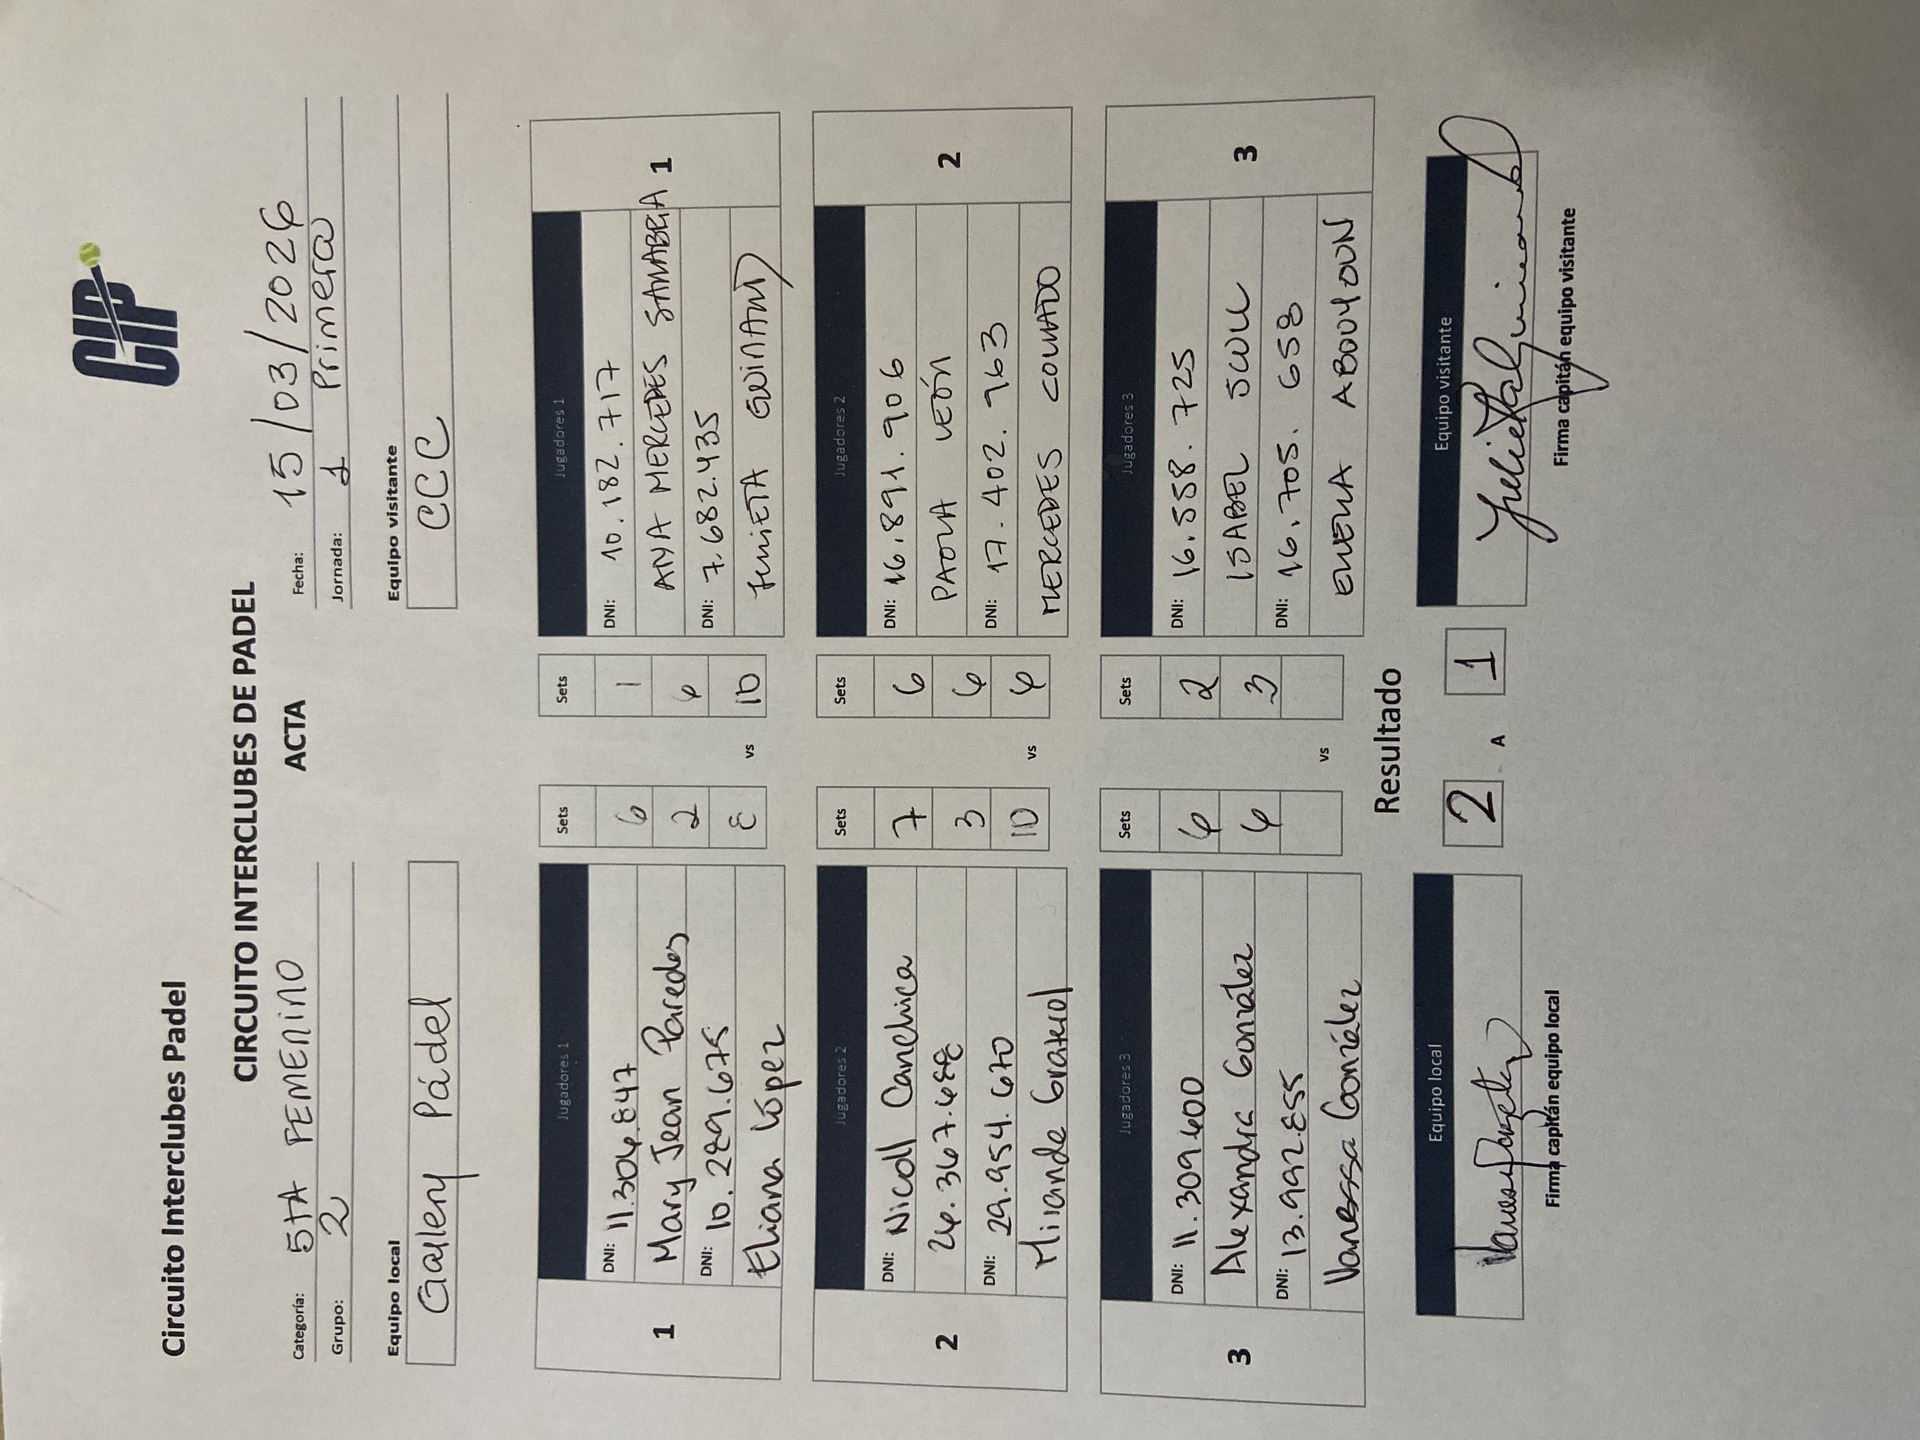 CIP
Circuito Interclubes Padel
CIRCUITO INTERCLUBES DE PADEL
ACTA
Categoría: 5TA FEMENINO
Grupo: 2
Fecha: 15/03/2026
Jornada: 1 Primera
Equipo local
Gallery Pádel
Equipo visitante
CCC
1
Jugadores 1
DNI: 11.306.847
Mary Jean Paredes
DNI: 10.289.675
Eliana López
Sets
6
2
8
vs
Sets
1
6
10
Jugadores 1
DNI: 10.182.717
ANA MERCEDES SANABRIA
DNI: 7.682.435
JULIETA GUINAND
1
2
Jugadores 2
DNI: Nicoll Canchica
26.367.688
DNI: 29.954.670
Miranda Graterol
Sets
7
3
10
vs
Sets
6
6
6
Jugadores 2
DNI: 16.891.906
PAOLA LEÓN
DNI: 17.402.763
MERCEDES COLLADO
2
3
Jugadores 3
DNI: 11.309.600
Alexandra González
DNI: 13.992.855
Vanessa González
Sets
6
6
vs
Sets
2
3
Jugadores 3
DNI: 16.558.725
ISABEL
DNI: 16.705.658
ABOUYOUN
3
Resultado
Equipo local
2 A 1
Equipo visitante
Firma capitán equipo local
Firma capitán equipo visitante